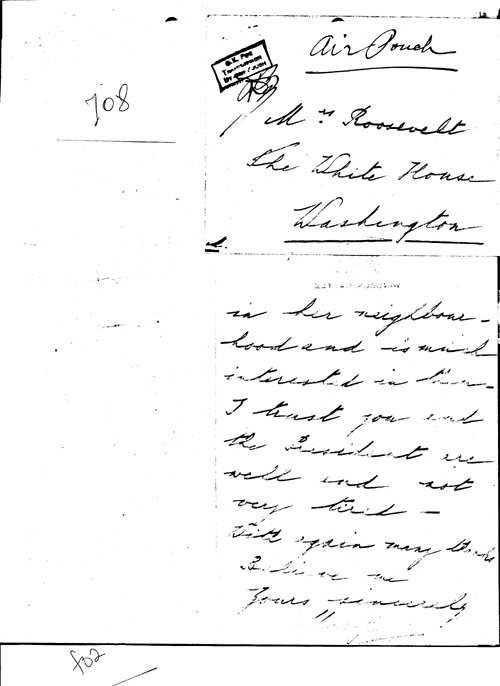 708
Air Pouch
O.K. FOR
TRANSMISSION
BY
Mrs Roosevelt
The White House
Washington
in her neighbour-
hood and is much
interested in them -
I trust you and
the President are
well and not
very tired -
With again many thanks
Believe me
Yours sincerely
702